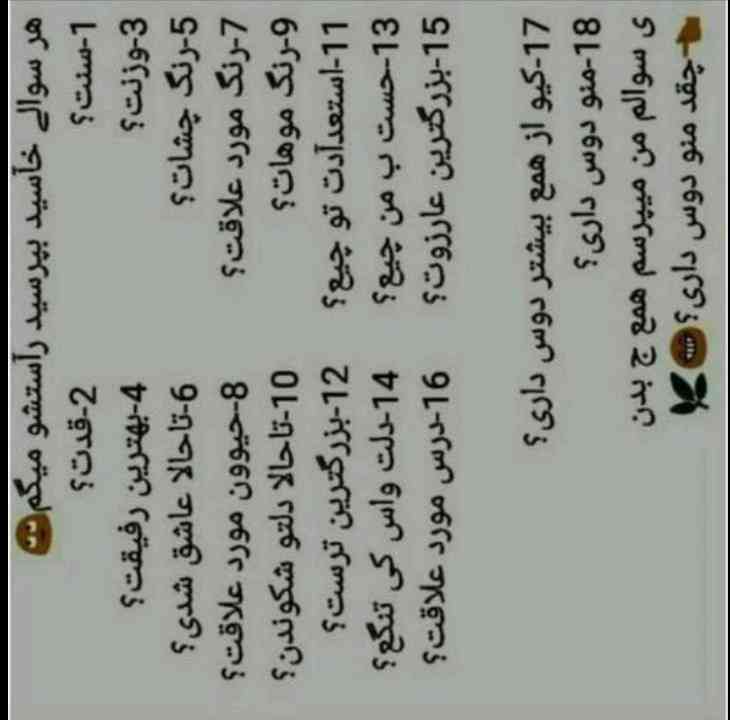 هر سوالے خاسید بپرسید رآستشو میگم😁
1-سنت؟ 2-قدت؟
3-وزنت؟ 4-بهترین رفیقت؟
5-رنگ چشات؟ 6-تاحالا عاشق شدی؟
7-رنگ مورد علاقت؟ 8-حیوون مورد علاقت؟
9-رنگ موهات؟ 10-تاحالا دلتو شکوندن؟
11-استعدآدت تو چیع؟ 12-بزرگترین ترست؟
13-حست ب من چیع؟ 14-دلت واس کی تنگع؟
15-بزرگترین عارزوت؟ 16-درس مورد علاقت؟
17-کیو از همع بیشتر دوس داری؟
18-منو دوس داری؟
ی سوالم من میپرسم همع ج بدن
👈چقد منو دوس داری؟😁🌿